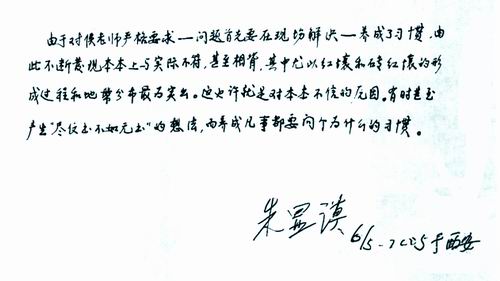 由于对侯老师严格要求—问题首先要在现场解决—养成了习惯,由
此不断发现本本上与实际不符,甚至相背,其中尤以红壤和砖红壤的形
成过程和地带分布最为突出。这也许就是对本本不信的原因。有时甚至
产生"尽信书不如无书"的想法,而养成凡事都要问个为什么的习惯。
朱显谟
6/5 - 于西安